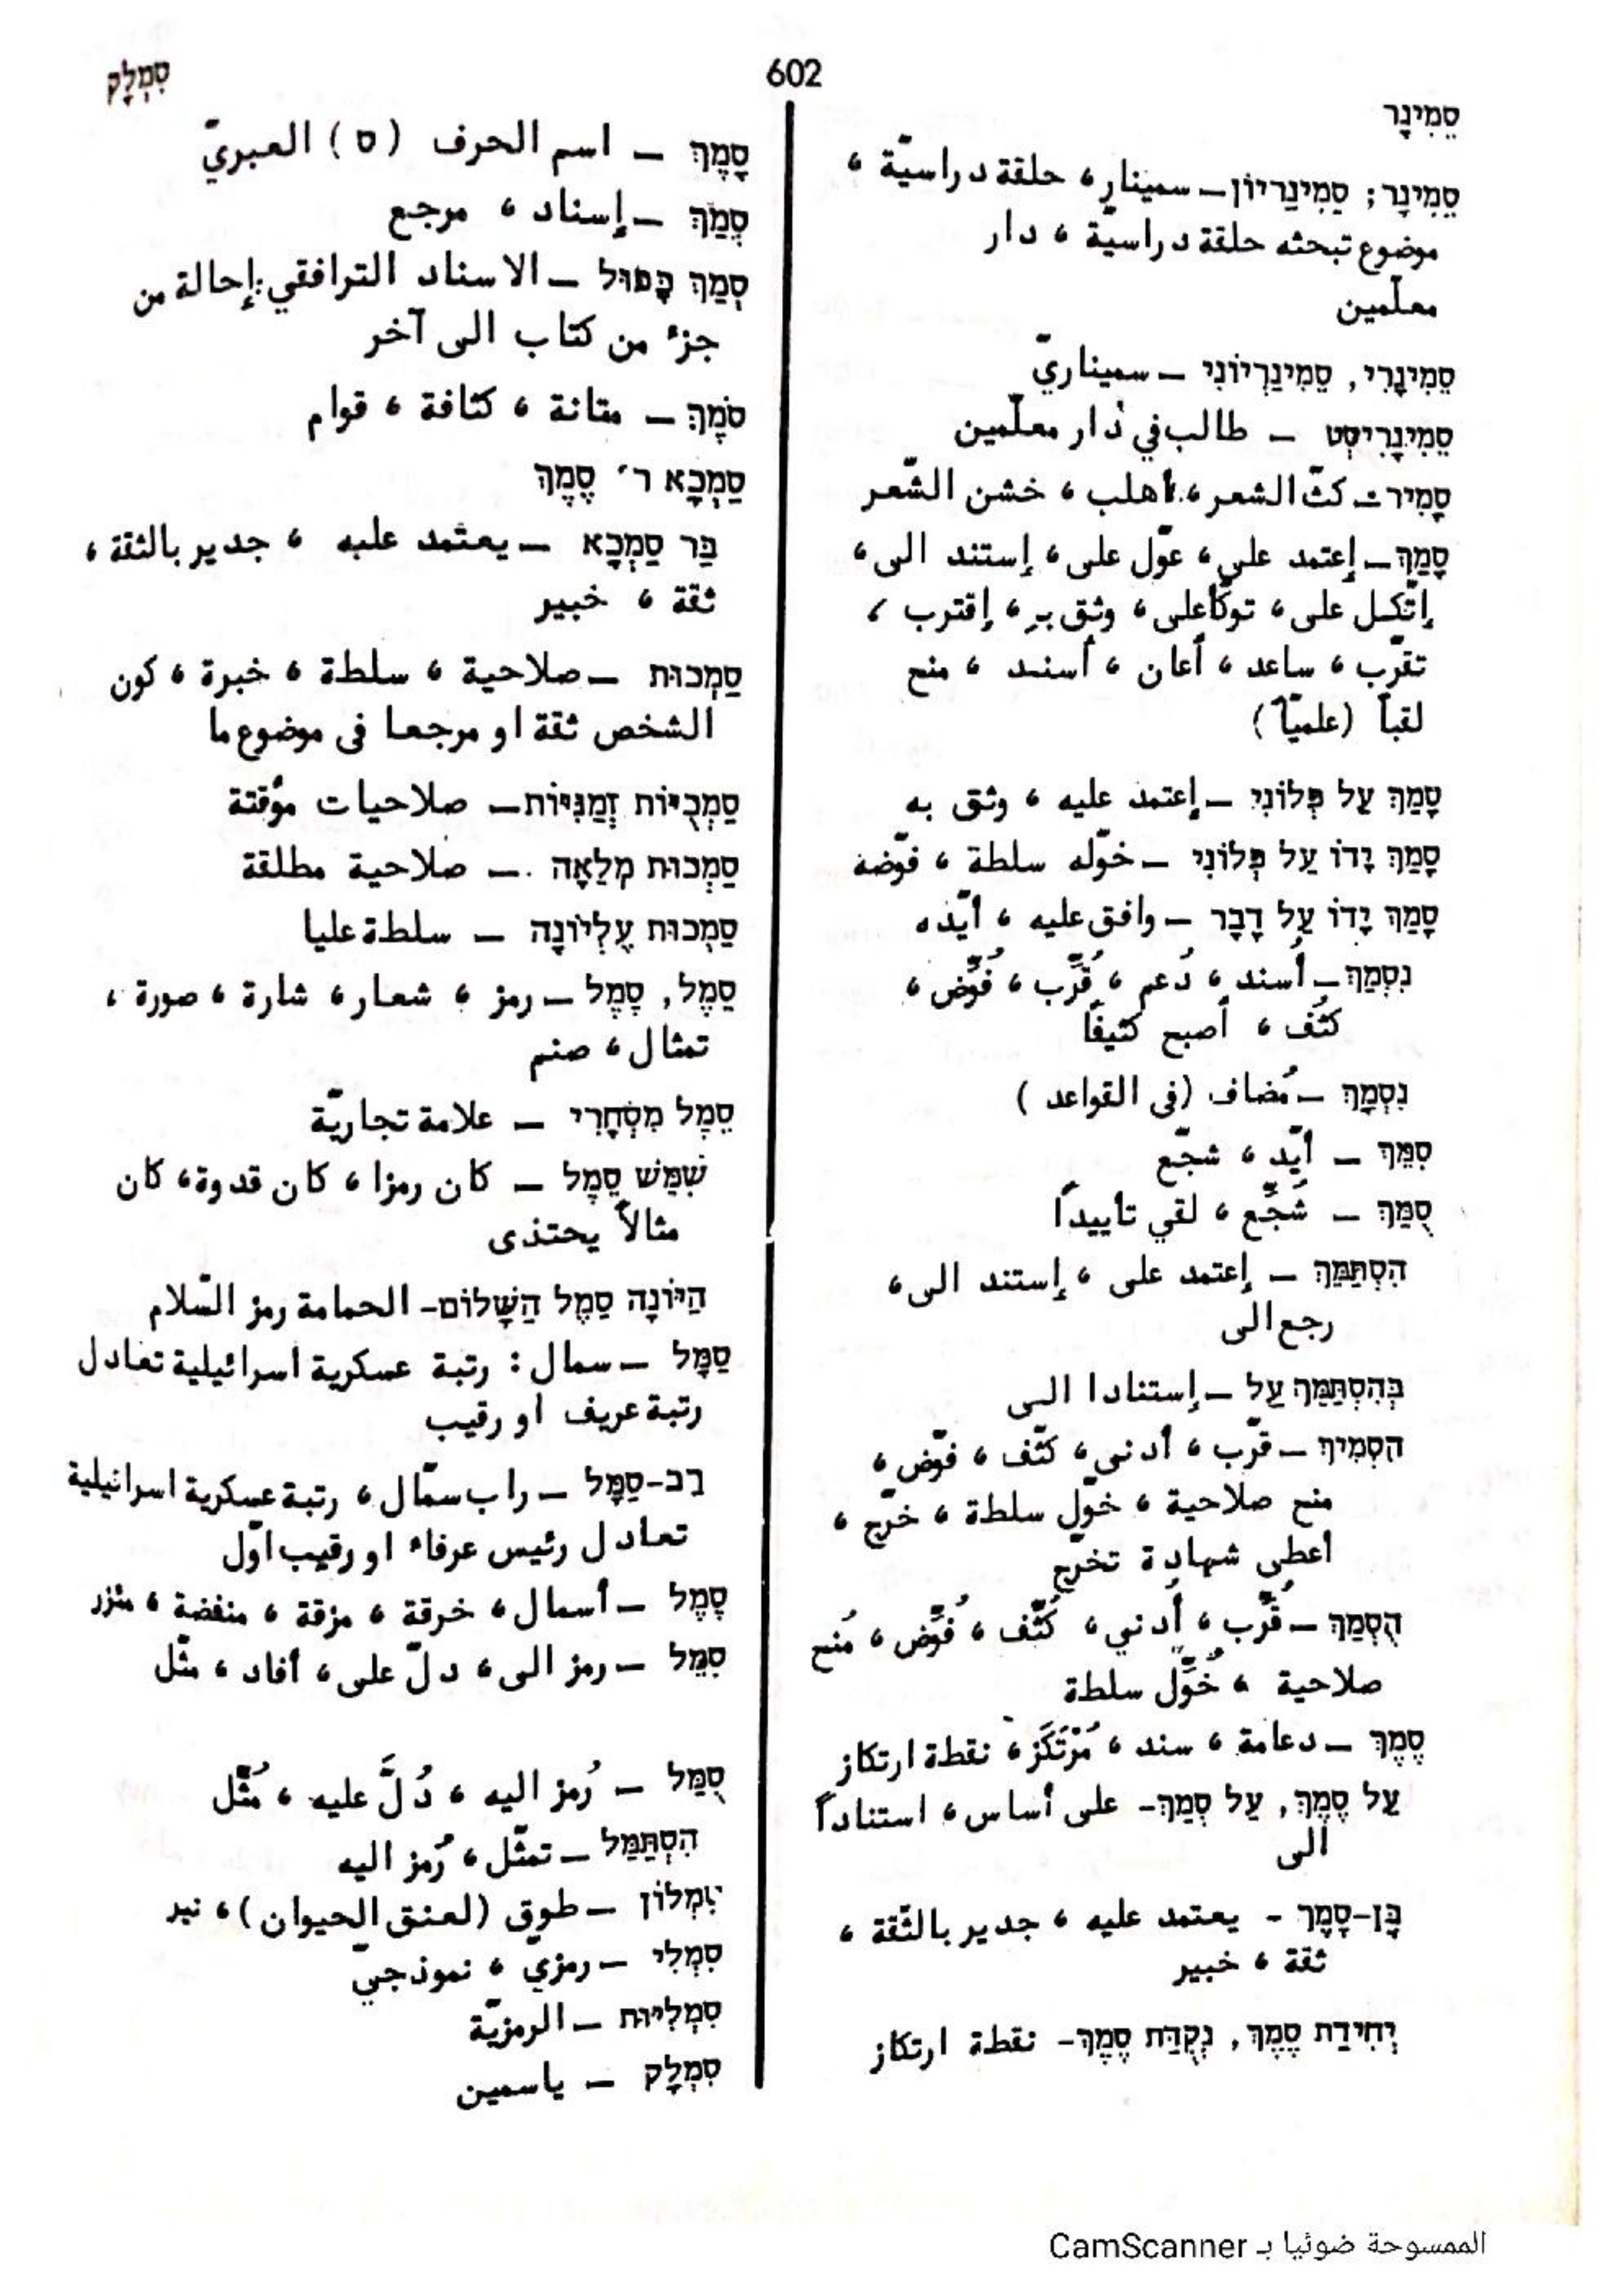 סֵמִינָר
602
סִמְלָק
סֵמִינָר; סֵמִינַרְיוֹן – سمينار، حلقة دراسيّة،
موضوع تبحثه حلقة دراسيّة، دار
معلّمين
סֵמִינָרִי, סֵמִינַרְיוֹנִי – سميناريّ
סֵמִינָרִיסְט – طالب في دار معلّمين
סָמִיר – كثّ الشعر، أهلب، خشن الشّعر
סָמַךְ – إعتمد على، عوّل على، إستند الى،
إتّكل على، توكّأ على، وثق بـ، إقترب،
تقرّب، ساعد، أعان، أسند، منح
لقباً (علميّاً)
סָמַךְ עַל פְּלוֹנִי – إعتمد عليه، وثق به
סָמַךְ יָדוֹ עַל פְּלוֹנִי – خوّله سلطة، فوّضه
סָמַךְ יָדוֹ עַל דָּבָר – وافق عليه، أيّده
נִסְמַךְ – أُسند، دُعم، قُرِّب، فُوِّض،
كثُف، أصبح كثيفًا
נִסְמָךְ – مُضاف (في القواعد)
סִמֵּךְ – أيّد، شجّع
סֻמַּךְ – شُجِّع، لقي تأييداً
הִסְתַּמֵּךְ – إعتمد على، إستند الى،
رجع الى
בְּהִסְתַּמֵּךְ עַל – إستنادا الى
הִסְמִיךְ – قرّب، أدنى، كثّف، فوّض،
منح صلاحية، خوّل سلطة، خرّج،
أعطى شهادة تخرّج
הֻסְמַךְ – قُرِّب، أُدني، كُثِّف، فُوِّض، مُنح
صلاحية، خُوِّل سلطة
סֶמֶךְ – دعامة، سند، مُرْتَكَز، نقطة ارتكاز
עַל סֶמֶךְ, עַל סְמַךְ – على أساس، استناداً
الى
בֶּן-סֶמֶךְ - يعتمد عليه، جدير بالثّقة،
ثقة، خبير
יְחִידַת סֶמֶךְ, נְקֻדַּת סֶמֶךְ – نقطة ارتكاز
סָמֶךְ – اسم الحرف (ס) العبريّ
סְמַךְ – إسناد، مرجع
סְמַךְ כָּפוּל – الاسناد الترافقي: إحالة من
جزء من كتاب الى آخر
סֹמֶךְ – متانة، كثافة، قوام
סַמְכָא ר׳ סֶמֶךְ
בַּר סַמְכָא – يعتمد عليه، جدير بالثقة،
ثقة، خبير
סַמְכוּת – صلاحية، سلطة، خبرة، كون
الشخص ثقة او مرجعا في موضوع ما
סַמְכֻיּוֹת זְמַנִּיּוֹת – صلاحيات مؤقتة
סַמְכוּת מְלֵאָה – صلاحية مطلقة
סַמְכוּת עֶלְיוֹנָה – سلطة عليا
סֵמֶל, סֶמֶל – رمز، شعار، شارة، صورة،
تمثال، صنم
סֵמֶל מִסְחָרִי – علامة تجاريّة
שִׁמֵּשׁ סֵמֶל – كان رمزا، كان قدوة، كان
مثالاً يحتذى
הַיּוֹנָה סֵמֶל הַשָּׁלוֹם – الحمامة رمز السّلام
סַמָּל – سمال: رتبة عسكرية اسرائيلية تعادل
رتبة عريف او رقيب
רַב-סַמָּל – راب سمّال، رتبة عسكرية اسرائيلية
تعادل رئيس عرفاء او رقيب اوّل
סֶמֶל – أسمال، خرقة، مزقة، منفضة، مئزر
סִמֵּל – رمز الى، دلّ على، أفاد، مثّل
סֻמַּל – رُمز اليه، دُلَّ عليه، مُثِّل
הִסְתַּמֵּל – تمثّل، رُمز اليه
סִמְלוֹן – طوق (لعنق الحيوان)، نير
סִמְלִי – رمزيّ، نموذجيّ
סִמְלִיּוּת – الرمزيّة
סִמְלָק – ياسمين
الممسوحة ضوئيا بـ CamScanner